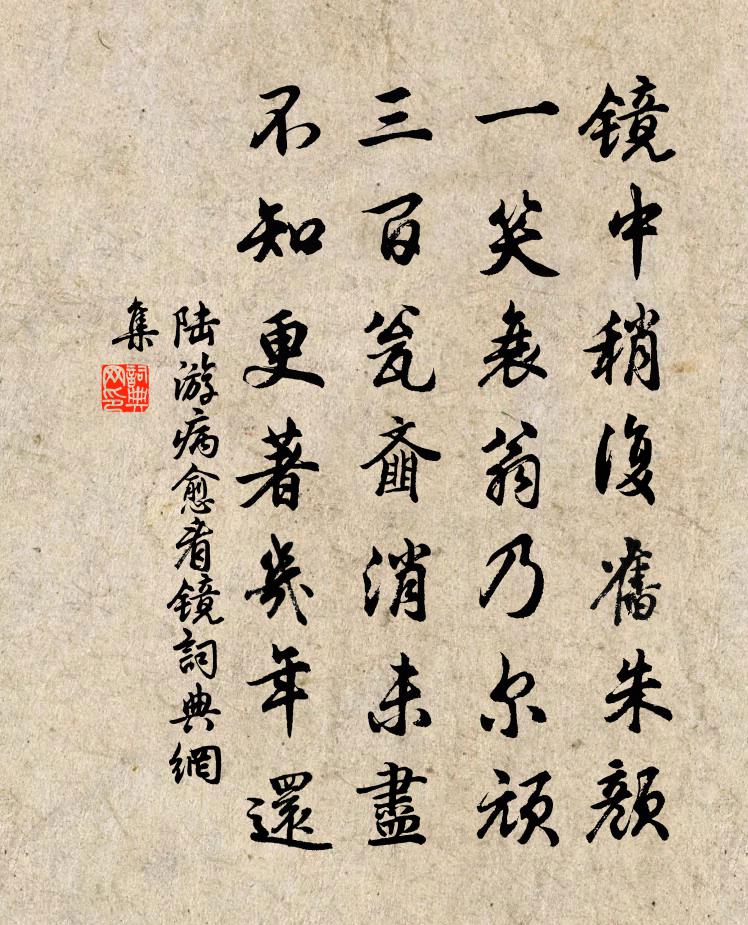 镜中稍復舊朱顔
一笑衰翁乃尔頑
三百瓮齑消未盡
不知更著幾年還
陆游病愈看镜詞典網
集
詞典网印